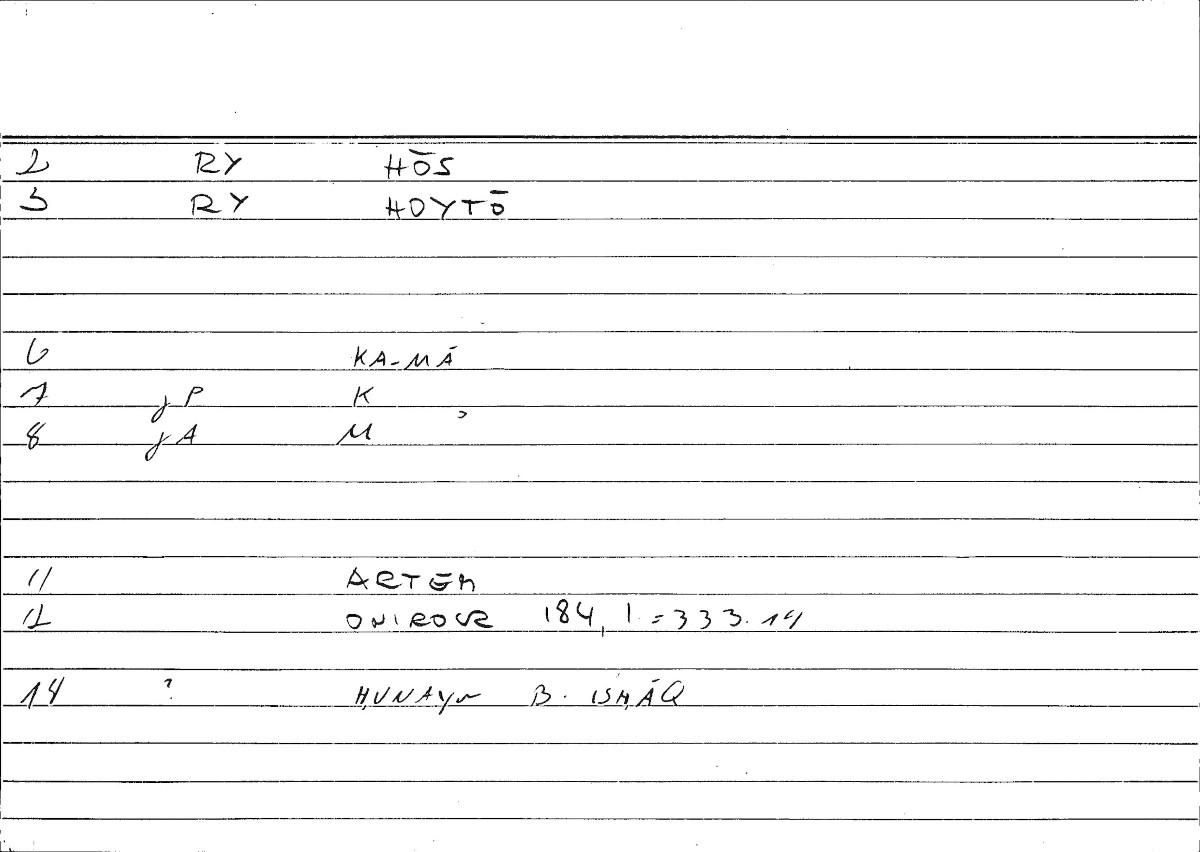 2 RY HŌS
3 RY HOYTŌ
6 KA-MĀ
7 jP K
8 jA M
11 ARTEM
12 ONIROCR 184,1.=333.14
14 ? ḤUNAYN B. ISḤĀQ